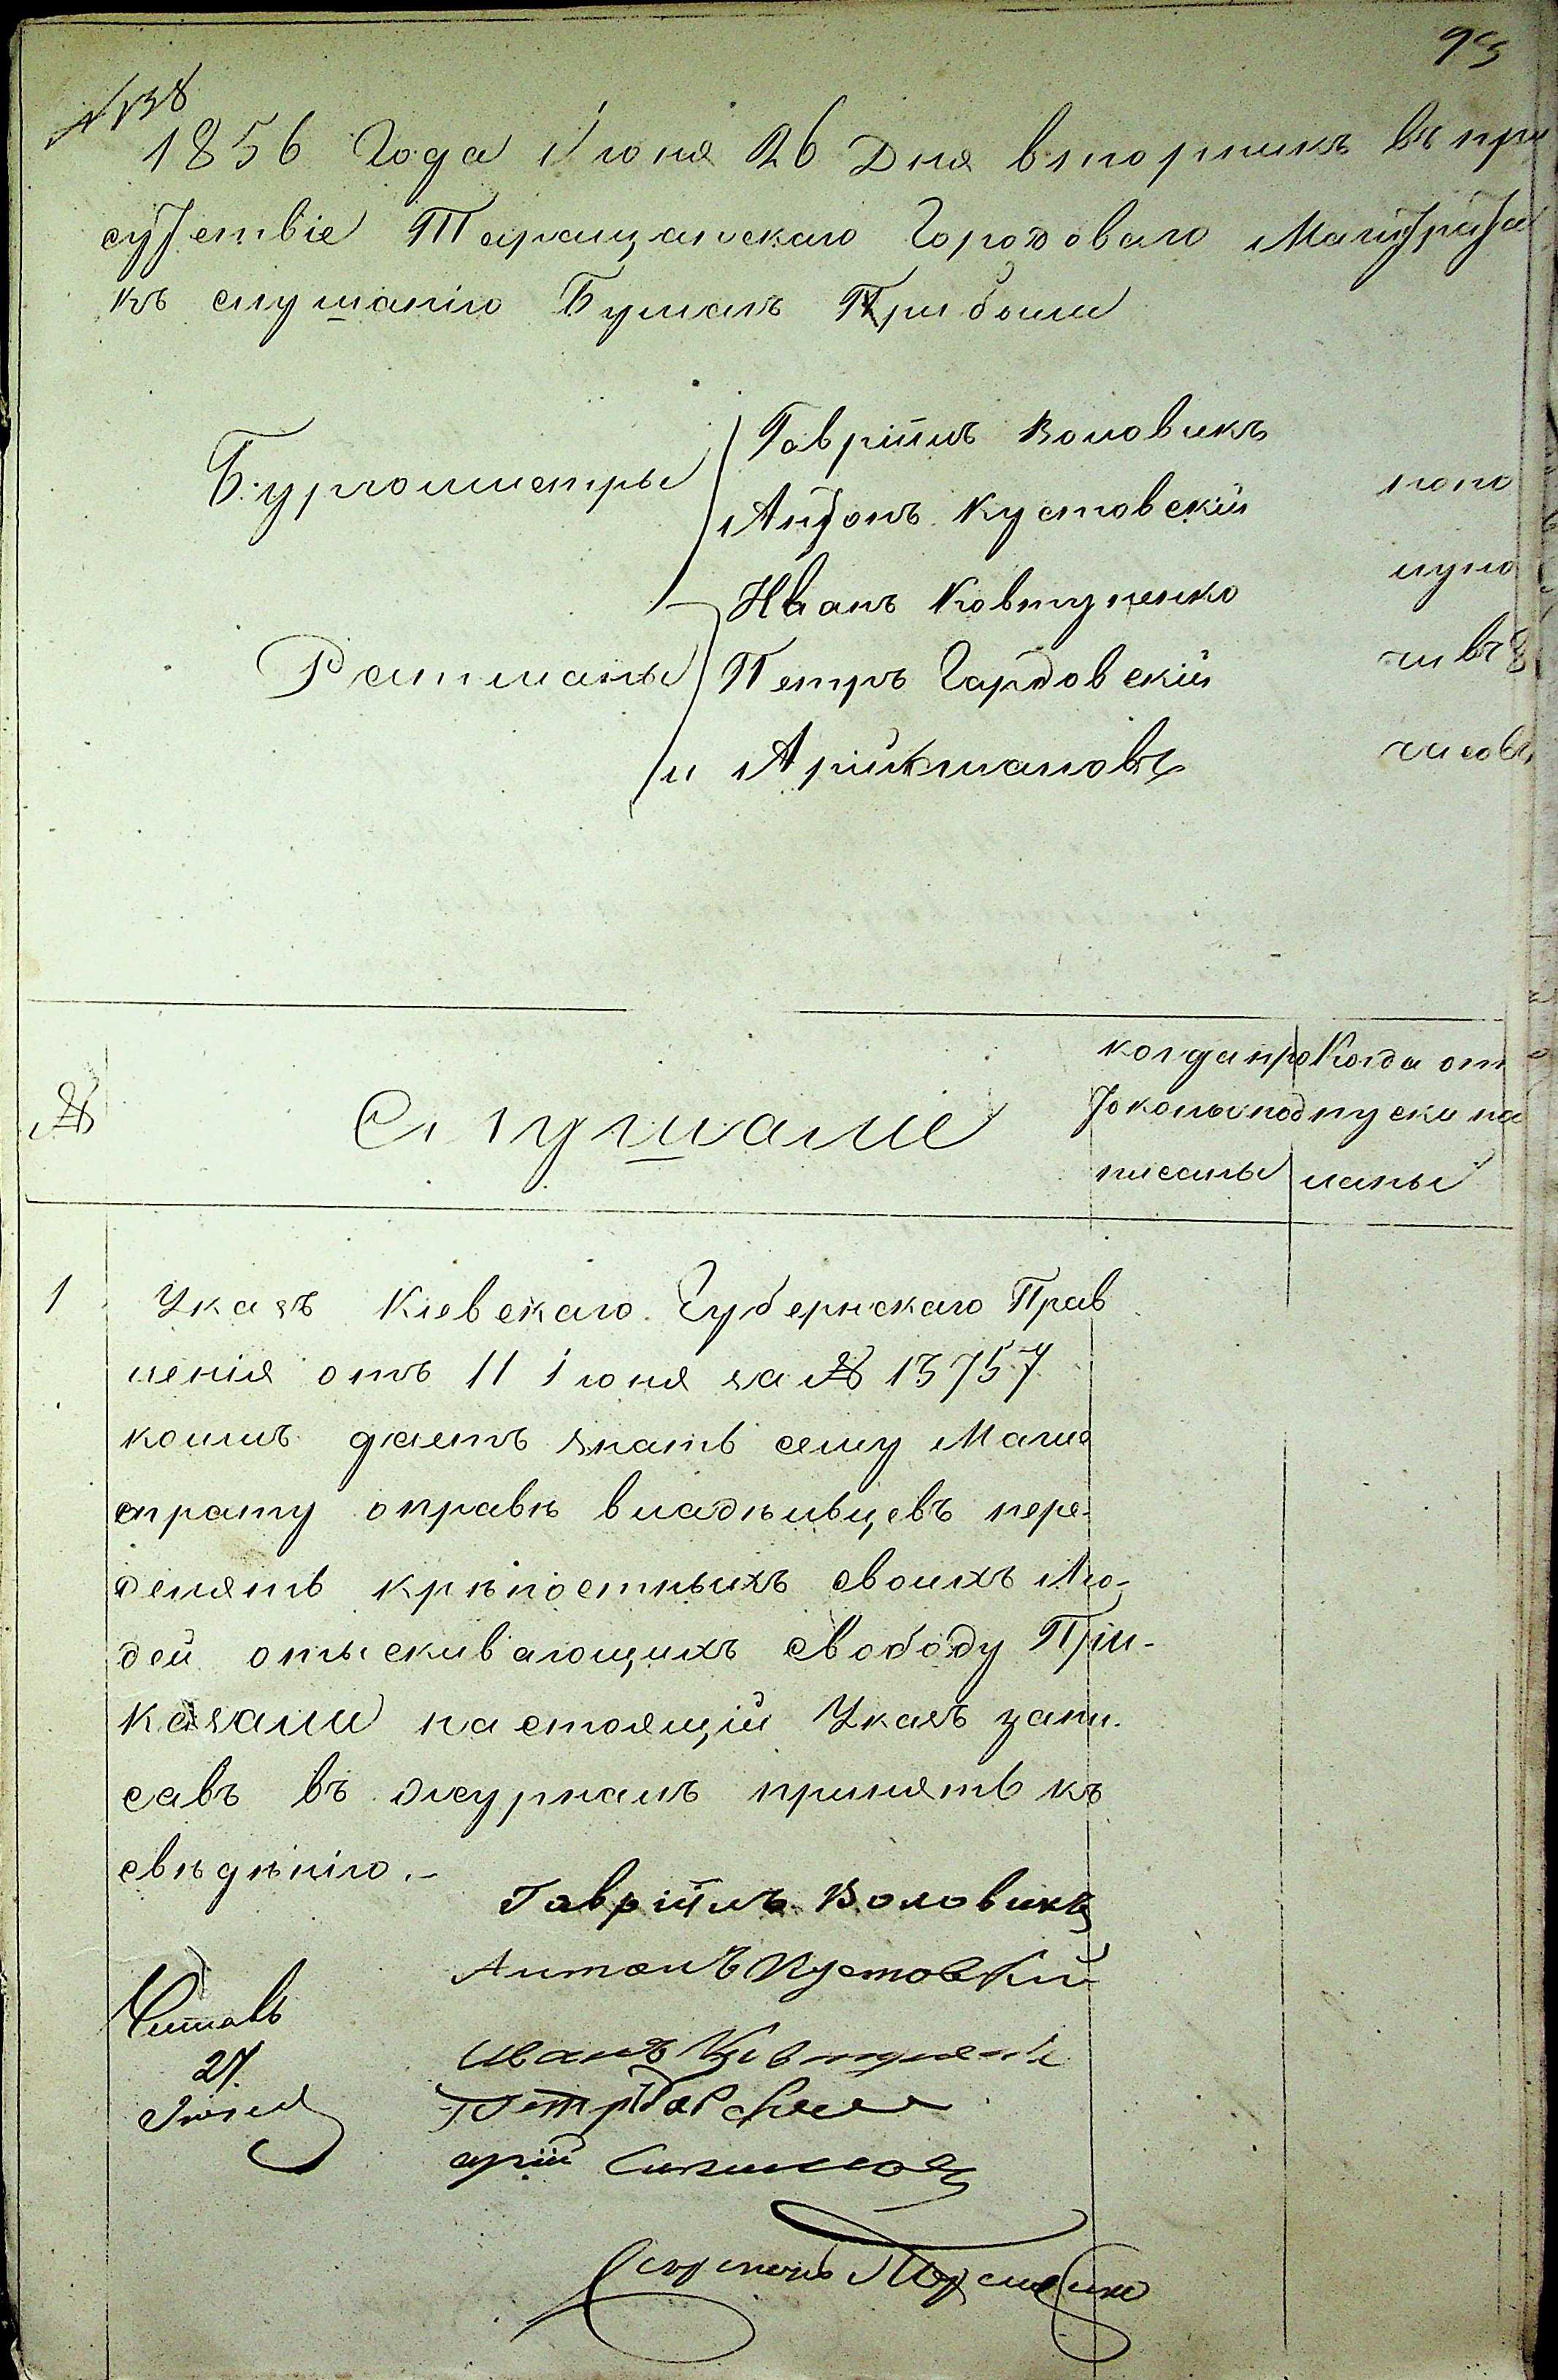 95
№ 138
1856 Года Іюня 26 Дня вторникъ въ при
сутствіе Таращанскаго Городоваго Магистрата
къ слушанію Бумагъ Прибыли
Бургомистры
Гавріилъ Воловикъ
Антонъ Кустовскій
Ратманы
Иванъ Ковтуненко
Петръ Гардовскій
и Арій
попо
луно
чи въ 8
часовъ
№
Слушаніе
когда про
токолы под
писаны
Когда от
пуски на
ланы
1
Указъ Кіевскаго Губернскаго Прав
ленія отъ 11 іюня за № 13757
коимъ даетъ знать сему Маги
страту оправѣ владѣльцевъ пере
делять крѣпостныхъ своихъ Лю-
дей отыскивающихъ свободу При-
казали настоящій Указъ запи-
савъ въ журналъ принять къ
свѣдѣнію.-
Гавріилъ Воловикъ
Антонъ Кустовкій
Иванъ Ковтуненко
Петръ
арій
Читалъ
27
Іюня
Секретарь